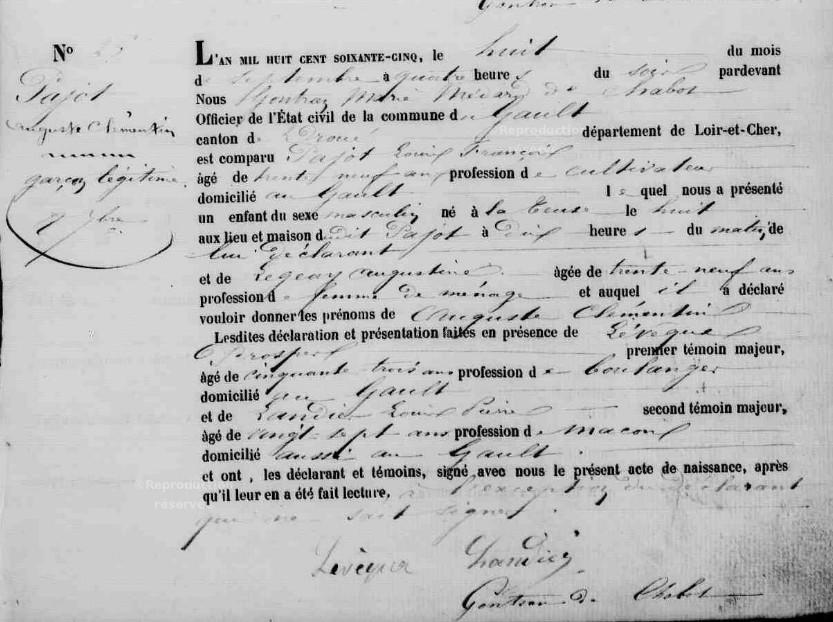 Gontran de Chabot
No
Pajot
Auguste Clémentin
garçon légitime.
8 7bre
L'AN MIL HUIT CENT SOIXANTE-CINQ, le huit du mois
de septembre à quatre heures du soir pardevant
Nous Gontran Marie Médard de Chabot
Officier de l'État civil de la commune du Gault
canton de Droué département de Loir-et-Cher,
est comparu Pajot Louis François
âgé de trente neuf ans profession de cultivateur
domicilié au Gault lequel nous a présenté
un enfant du sexe masculin né à la le huit
aux lieu et maison dudit Pajot à dix heures du matin, de
lui déclarant
et de Legeay Augustine âgée de trente-neuf ans
profession de femme de ménage et auquel il a déclaré
vouloir donner les prénoms de Auguste Clémentin
Lesdites déclaration et présentation faites en présence de Lévêque
Prosper premier témoin majeur,
âgé de cinquante-trois ans profession de boulanger
domicilié au Gault
et de Landier Louis Pierre second témoin majeur,
âgé de vingt-sept ans profession de maçon
domicilié aussi au Gault.
et ont, les déclarant et témoins, signé avec nous le présent acte de naissance, après
qu'il leur en a été fait lecture, à l'exception du déclarant
qui ne sait signer.
Lévêque Landier
Gontran de Chabot
Reproduction
Reproduction
réservée